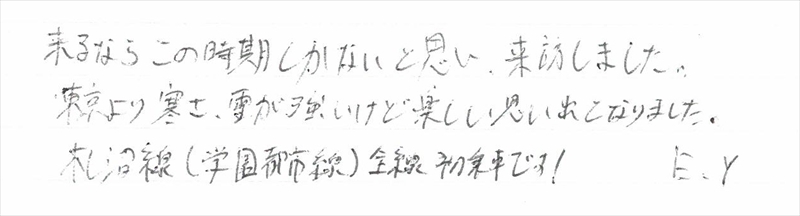 来るならこの時期しかないと思い、来訪しました。
東京より寒さ、雪が強いけど楽しい思い出となりました。
札沼線(学園都市線)全線初乗車です! E.Y